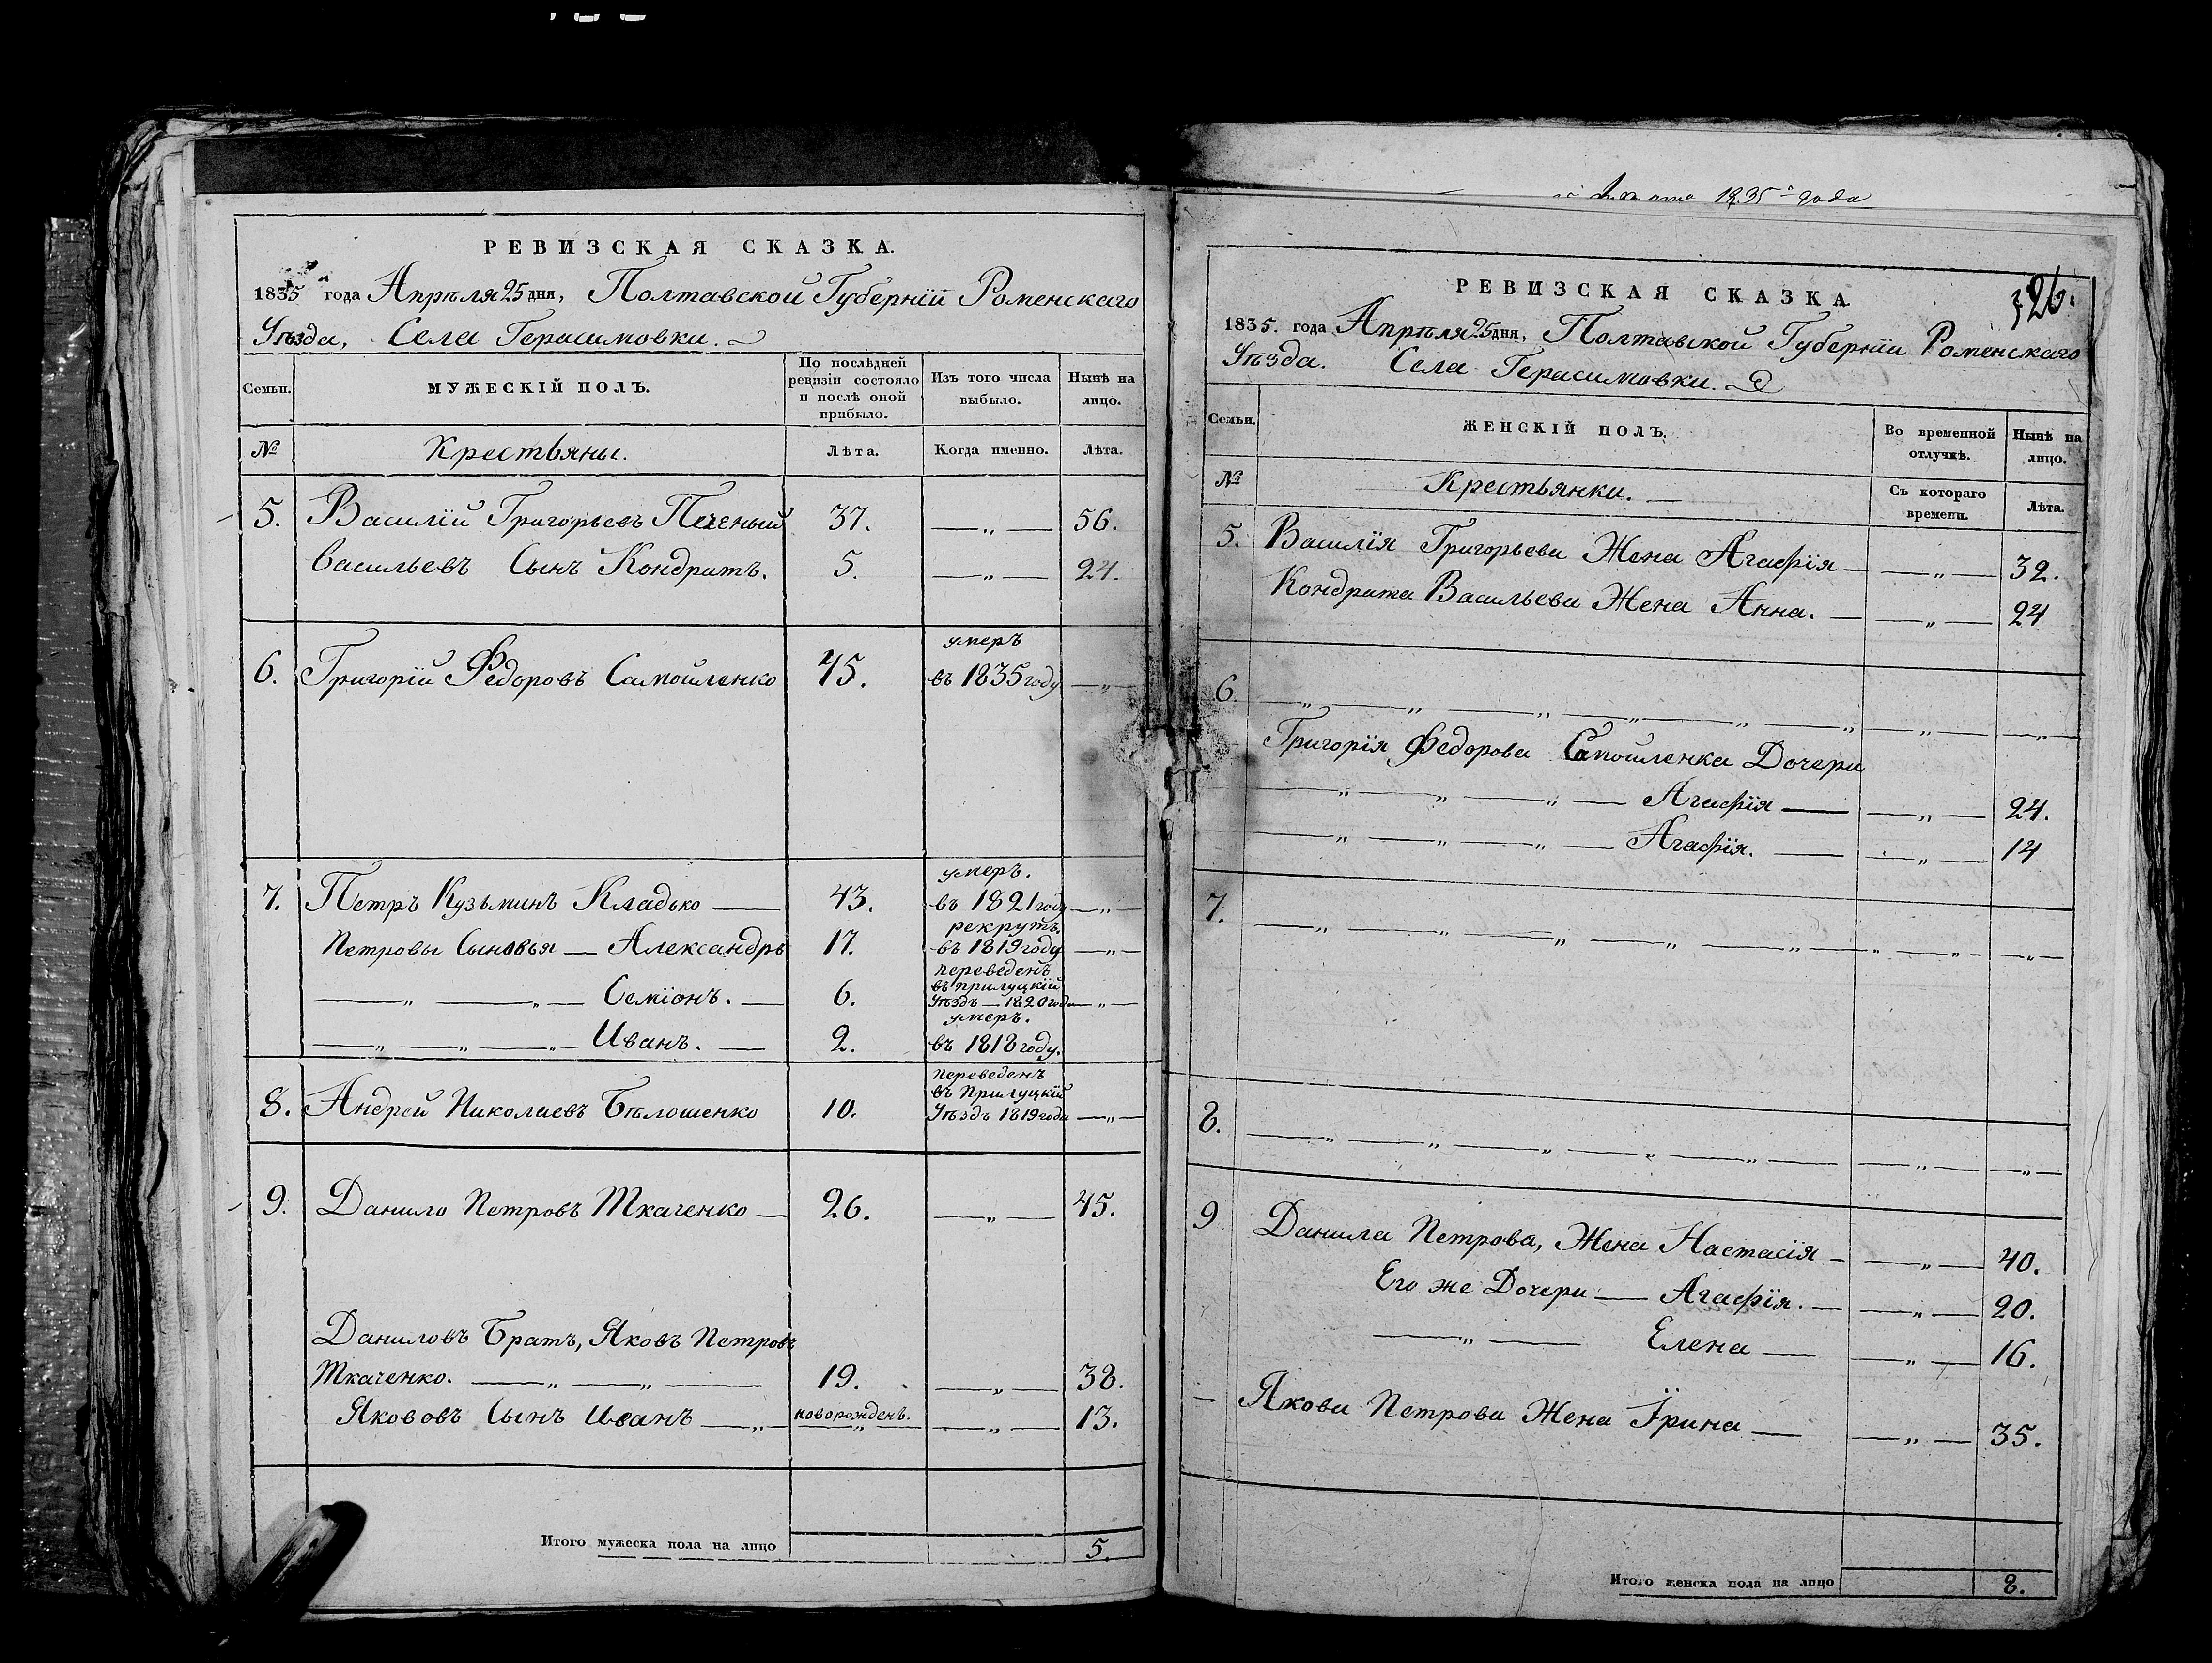 РЕВИЗСКАЯ СКАЗКА.
1835 года Апрѣля 25 дня, Полтавской Губерніи Роменскаго
Уѣзда, Села Герасимовки.
Семьи. МУЖЕСКІЙ ПОЛЪ. По послѣдней ревизіи состояло и послѣ оной прибыло. Изъ того числа выбыло. Нынѣ на лицо.
№ Крестьяны. Лѣта. Когда именно. Лѣта.
5. Василій Григорьевъ Печеный 37. — „ — 56.
Васильевъ Сынъ Кондратъ. 5. — „ — 24.
умеръ
6. Григорій Федоровъ Самойленко 45. въ 1835 году — „ —
умеръ.
7. Петръ Кузьминъ Кладько — 43. въ 1821 году — „ —
рекрутъ.
Петровы Сыновья — Александръ 17. въ 1819 году — „ —
переведенъ
въ прилуцкій
— „ — „ — Семіонъ. — 6. Уѣздъ — 1820 года — „ —
умеръ.
— „ — „ — „ — Иванъ. — 2. въ 1818 году.
переведенъ
въ Прилуцкій
8. Андрей Николаевъ Бѣлошенко 10. Уѣздъ 1819 года — „ —
9. Данило Петровъ Ткаченко — 26. — „ — 45.
Даниловъ Братъ, Яковъ Петровъ
Ткаченко. — „ — „ — 19. — „ — 38.
Якововъ Сынъ Иванъ — „ — новорожденъ. — „ — 13.
Итого мужеска пола на лицо 5.
Апрѣля 1835 года
326.
РЕВИЗСКАЯ СКАЗКА
1835. года Апрѣля 25 дня, Полтавской Губерніи Роменскаго
Уѣзда. Села Герасимовки.
Семьи. ЖЕНСКІЙ ПОЛЪ. Во временной отлучкѣ. Нынѣ на лицо.
№ Крестьянки. — Съ котораго времени. Лѣта.
5. Василія Григорьева Жена Агафія — — „ — 32.
Кондрата Васильева Жена Анна. — — „ — 24
6. — „ — „ — „ — „ — „ — „ — „ — „ —
Григорія Федорова Самойленка Дочери
— „ — „ — „ — Агафія — — „ — 24.
— „ — „ — „ — Агафія. — — „ — 14
7. — „ — „ — „ — „ — „ — „ — „ —
8. — „ — „ — „ — „ — „ — — „ — — „ —
9 Данила Петрова, Жена Настасія — — „ — 40.
Его же Дочери — Агафія. — — „ — 20.
— „ — Елена — — „ — 16.
— Якова Петрова Жена Ірина — — „ — 35.
Итого женска пола на лицо 8.